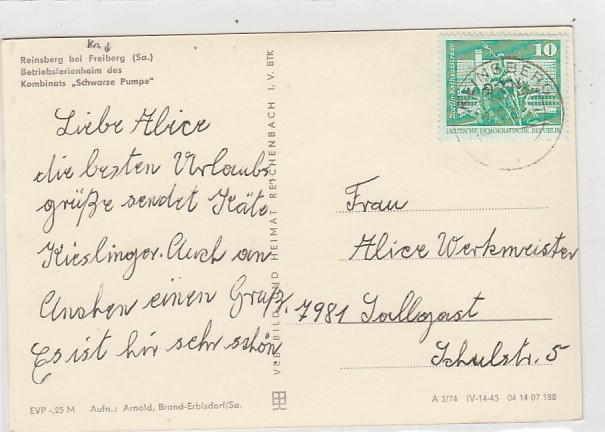 Reinsberg bei Freiberg (Sa.)
Betriebsferienheim des
Kombinats „Schwarze Pumpe"
Liebe Alice
die besten Urlaubs
grüße sendet Käte
Kieslinger. Auch an
Anshen einen Gruß.
Es ist hir sehr schön
EVP -,25 M Aufn.: Arnold, Brand-Erbisdorf/Sa.
VEB BILD UND HEIMAT REICHENBACH I. V. BTK
10
Berlin, Rathausstraße
DEUTSCHE DEMOKRATISCHE REPUBLIK
REINSBERG
Frau
Alice Werkmeister
7981 Sallgast
Schulstr. 5
A 3/74 IV-14-45 04 14 07 188